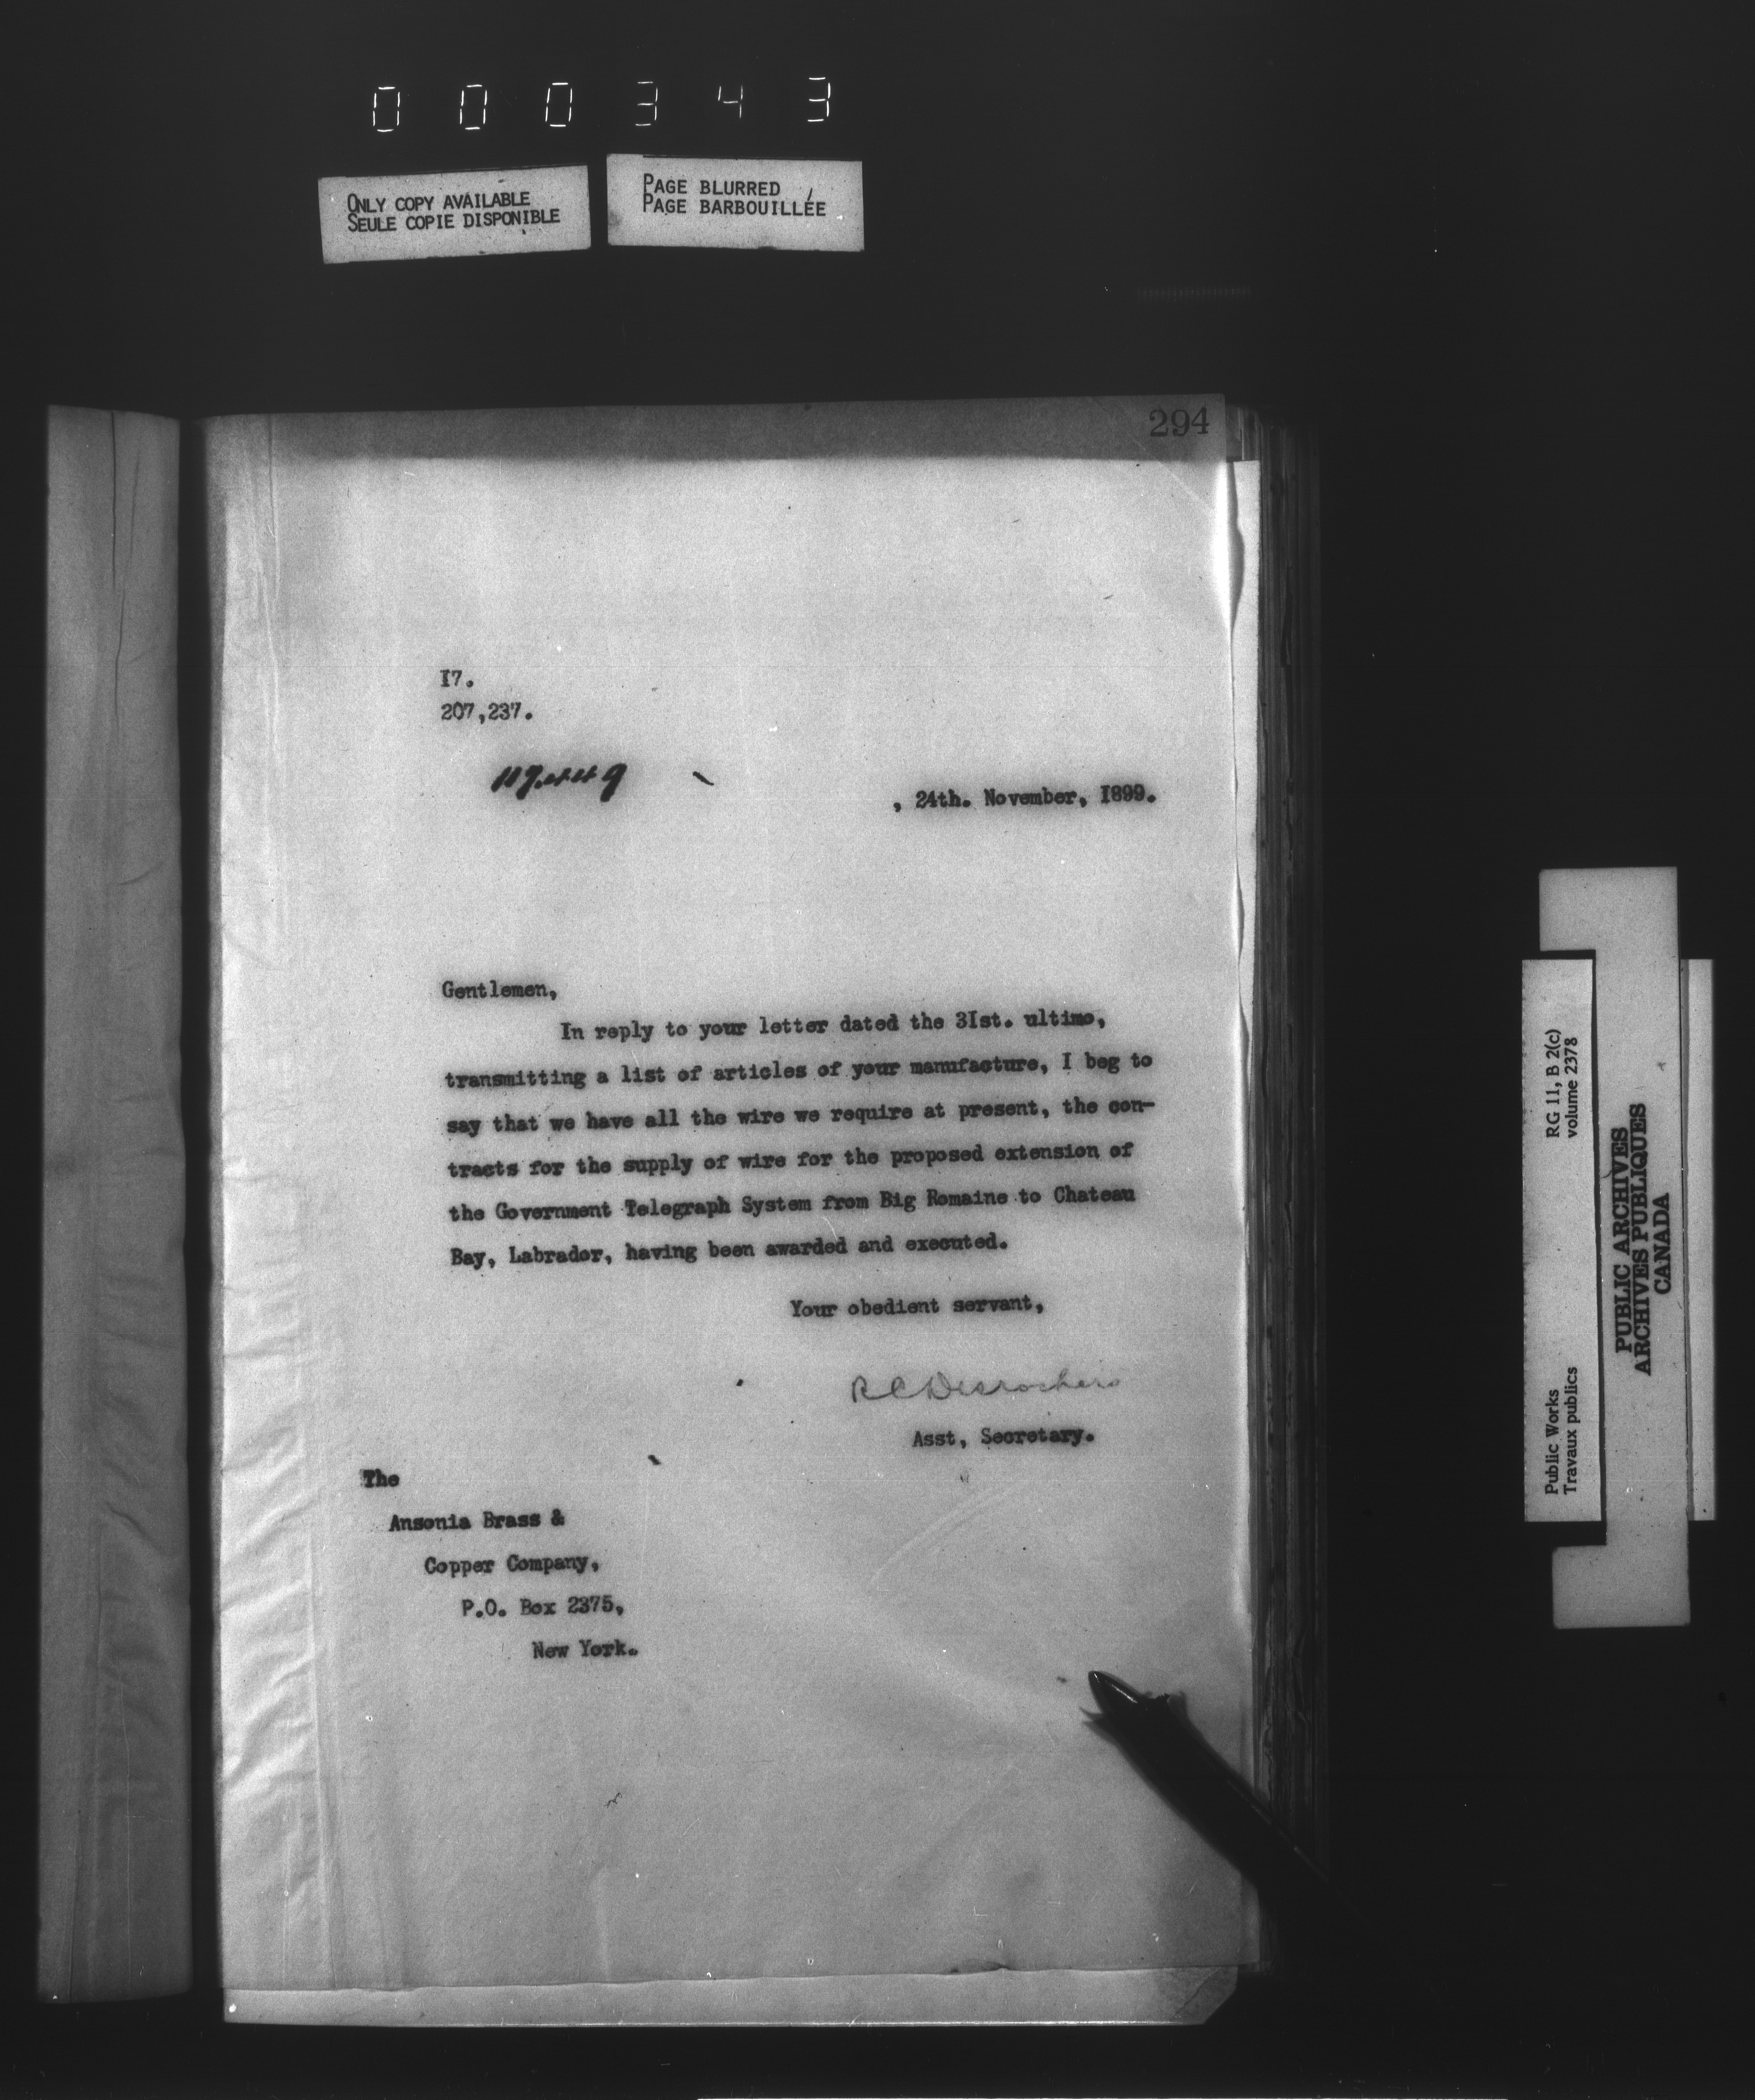 000343
ONLY COPY AVAILABLE
SEULE COPIE DISPONIBLE
PAGE BLURRED
PAGE BARBOUILLÉE
294
I7.
207,237.
, 24th. November, I899.
Gentlemen,
In reply to your letter dated the 3Ist. ultimo,
transmitting a list of articles of your manufacture, I beg to
say that we have all the wire we require at present, the con-
tracts for the supply of wire for the proposed extension of
the Government Telegraph System from Big Romaine to Chateau
Bay, Labrador, having been awarded and executed.
Your obedient servant,
RC Desrochers
Asst, Secretary.
The
Ansonia Brass &
Copper Company,
P.O. Box 2375,
New York.
Public Works
Travaux publics
RG 11, B 2(c)
volume 2378
PUBLIC ARCHIVES
ARCHIVES PUBLIQUES
CANADA